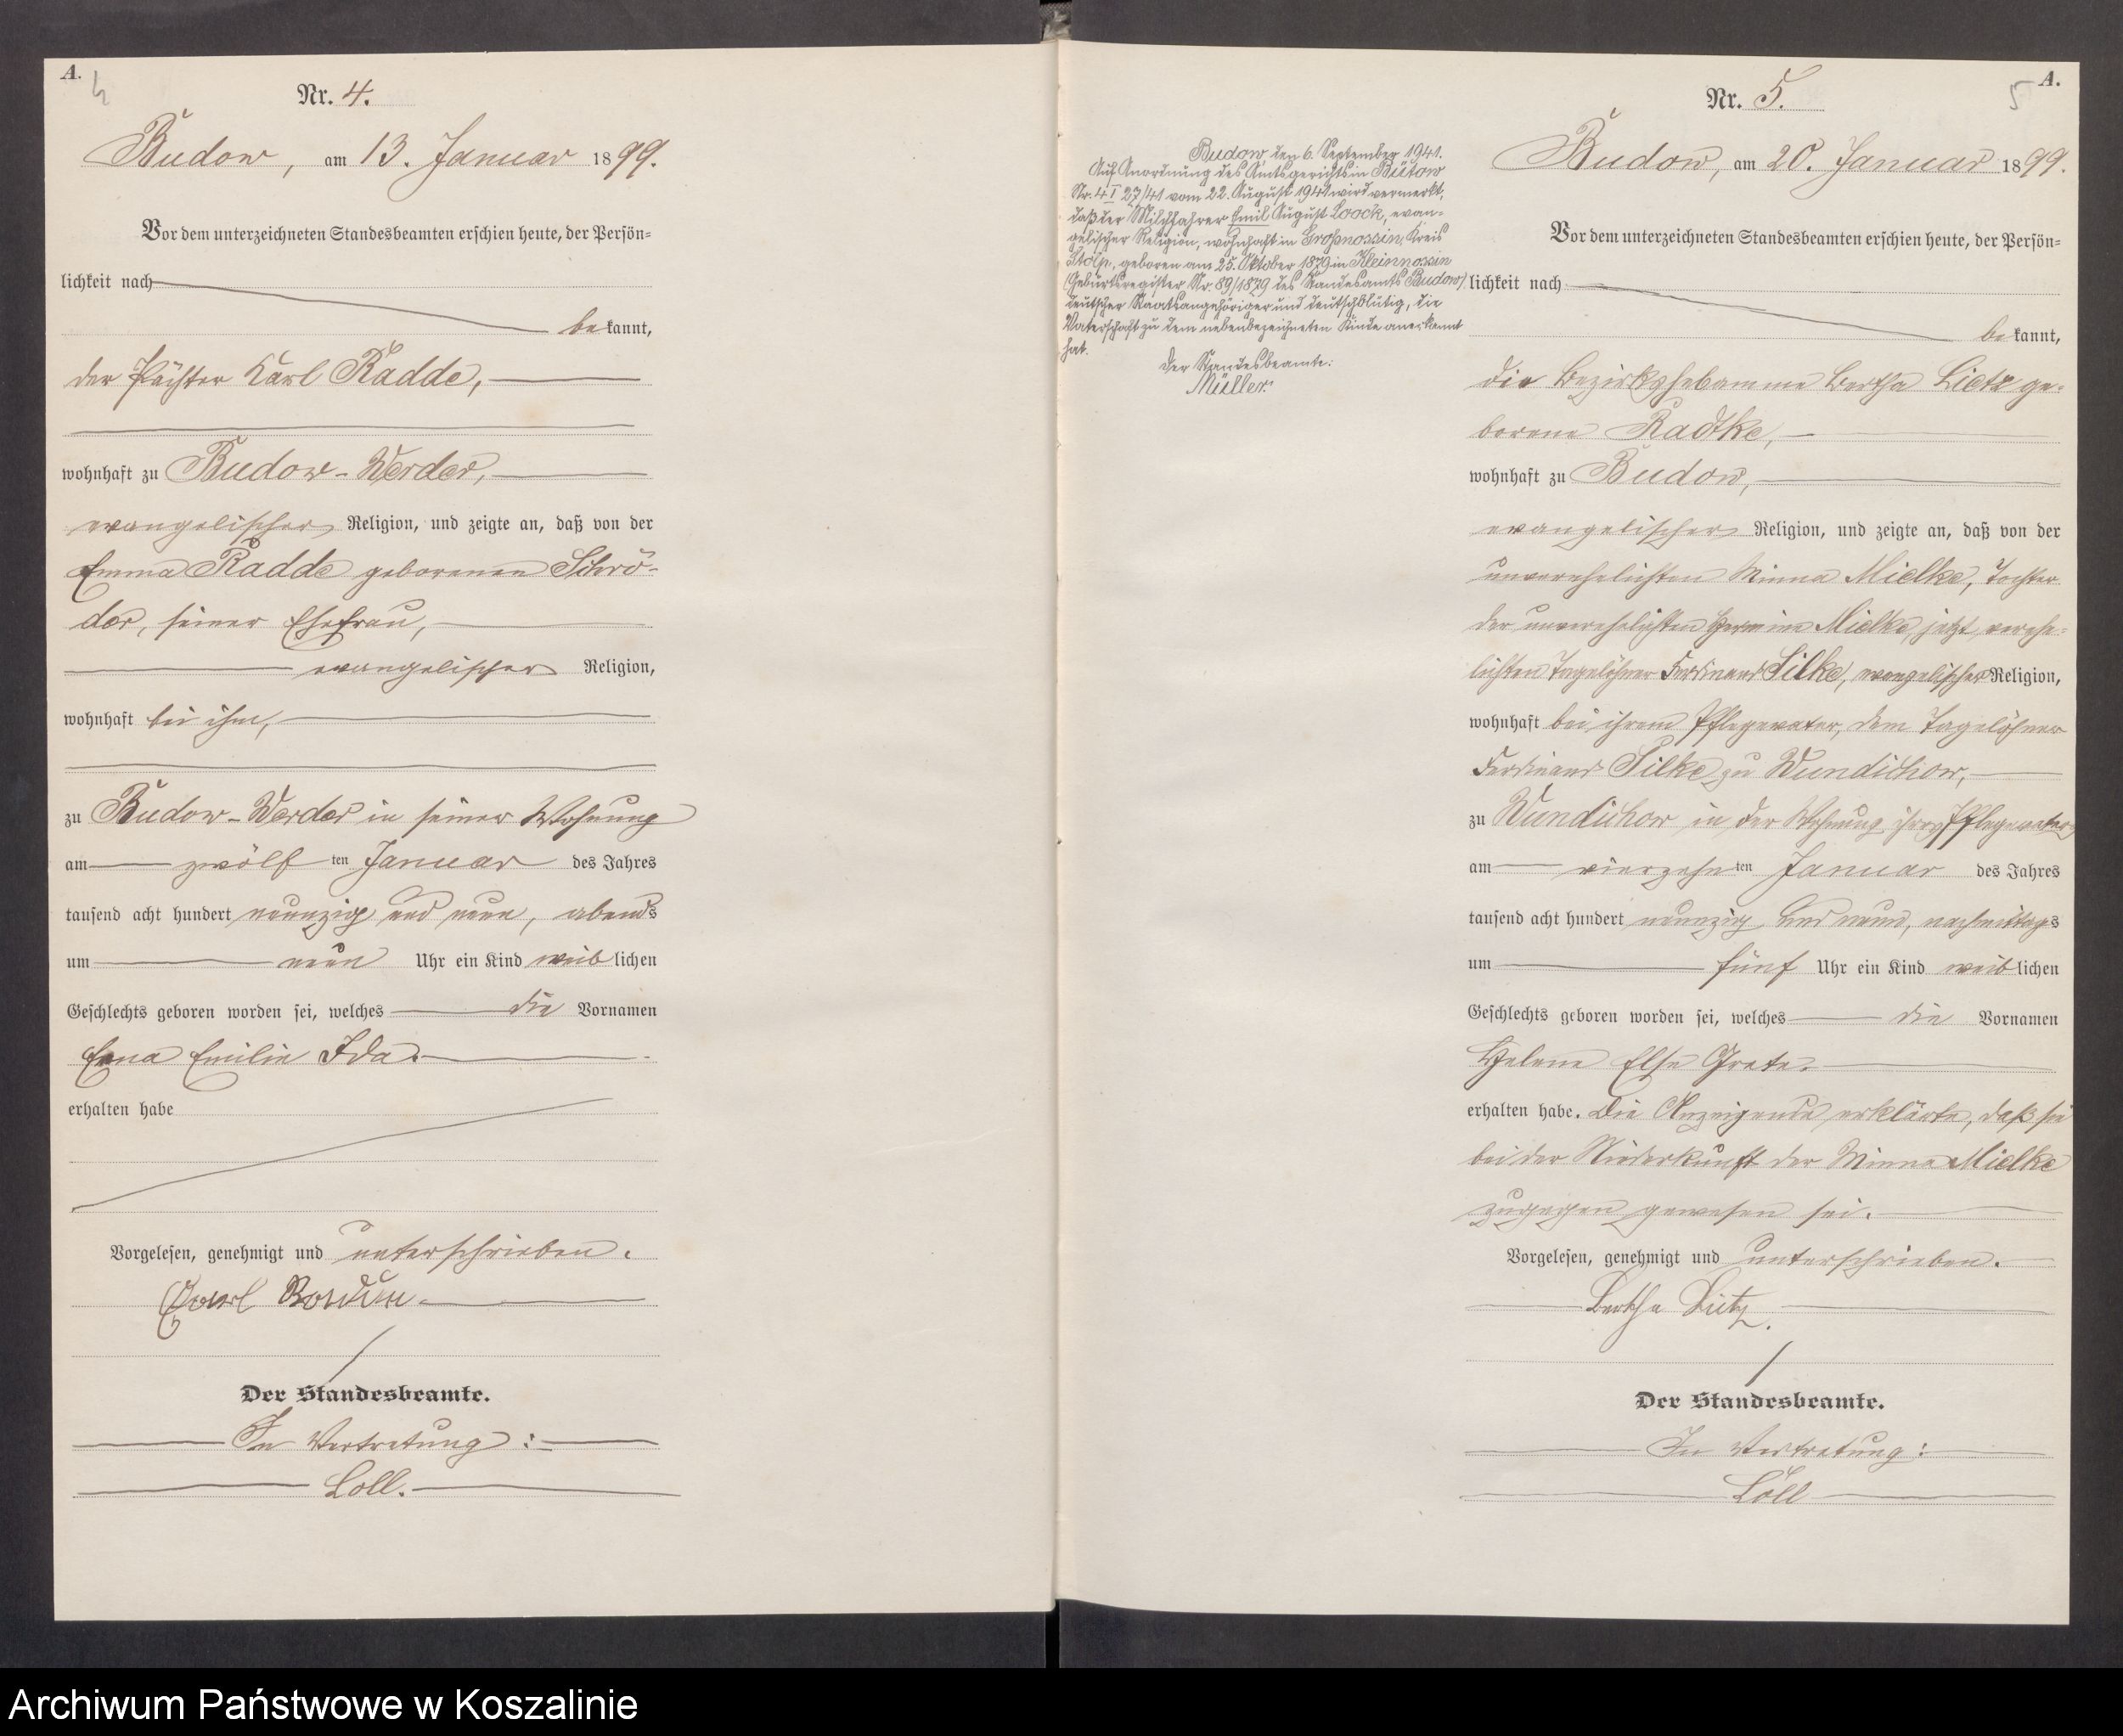 A.
4
Nr. 4.
Budow, am 13. Januar 1899.
Vor dem unterzeichneten Standesbeamten erschien heute, der Persön=
lichkeit nach
bekannt,
der Pächter Karl Radde,
wohnhaft zu Budow-Werder,
evangelischer Religion, und zeigte an, daß von der
Emma Radde geborenen Schrö-
der, seiner Ehefrau,
evangelischer Religion,
wohnhaft bei ihm,
zu Budow-Werder in seiner Wohnung
am zwölften Januar des Jahres
tausend acht hundert neunzig und neun, abends
um neun Uhr ein Kind weiblichen
Geschlechts geboren worden sei, welches die Vornamen
Erna Emilie Ida.
erhalten habe
Vorgelesen, genehmigt und unterschrieben.
Carl
Der Standesbeamte.
In Vertretung:
Loll.
Budow, den 6. September 1941.
Auf Anordnung des Amtsgerichts in Bütow
Nr. 4 I 27/41 vom 22. August 1941 wird vermerkt,
daß der Milchfahrer Emil August Loock, evan-
gelischer Religion, wohnhaft in Großnossin, Kreis
Stolp, geboren am 25. Oktober 1879 in Kleinnossin
(Geburtsregister Nr. 89/1879 des Standesamts Budow)
deutscher Staatsangehöriger und deutschblütig, die
Vaterschaft zu dem nebenbezeichneten Kinde anerkannt
hat.
Der Standesbeamte:
Müller.
A.
5
Nr. 5.
Budow, am 20. Januar 1899.
Vor dem unterzeichneten Standesbeamten erschien heute, der Persön=
lichkeit nach
bekannt,
die Bezirkshebamme Bertha Lietz ge-
borene Radtke,
wohnhaft zu Budow,
evangelischer Religion, und zeigte an, daß von der
unverehelichten Minna Mielke, Tochter
der unverehelichten Hermine Mielke, jetzt verehe-
lichten Tagelöhner Ferdinand Silke, evangelischer Religion,
wohnhaft bei ihrem Pflegevater, dem Tagelöhner
Ferdinand Silke zu Wundichow,
zu Wundichow in der Wohnung ihres Pflegevaters
am vierzehnten Januar des Jahres
tausend acht hundert neunzig und neun, nachmittags
um fünf Uhr ein Kind weiblichen
Geschlechts geboren worden sei, welches die Vornamen
Helene Else Grete.
erhalten habe. Die Anzeigende erklärte, daß sie
bei der Niederkunft der Minna Mielke
zugegen gewesen sei.
Vorgelesen, genehmigt und unterschrieben.
Bertha Lietz.
Der Standesbeamte.
In Vertretung:
Loll
Archiwum Państwowe w Koszalinie